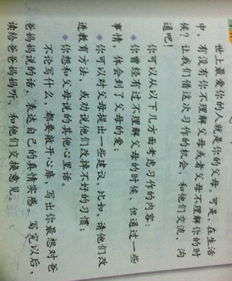 世上最爱你的人就是你的父母，可是，在生活
中，有没有你不理解父母或是父母不理解你的时
候？让我们借这次习作的机会，和他们交流、沟
通吧！
你可以从以下几方面考虑习作的内容：
◆你曾经有过不理解父母的时候，但通过一些
事情，体会到了父母的爱。
◆你可以对父母提出一些建议，比如，请他们改
进教育方法，或劝说他们改掉不好的习惯；
◆你想和父母说的其他心里话。
不论写什么，都要敞开心扉，写出你最想对爸
爸妈妈说的话，表达自己的真情实感。写完以后，
读给爸爸妈妈听，和他们交换意见。